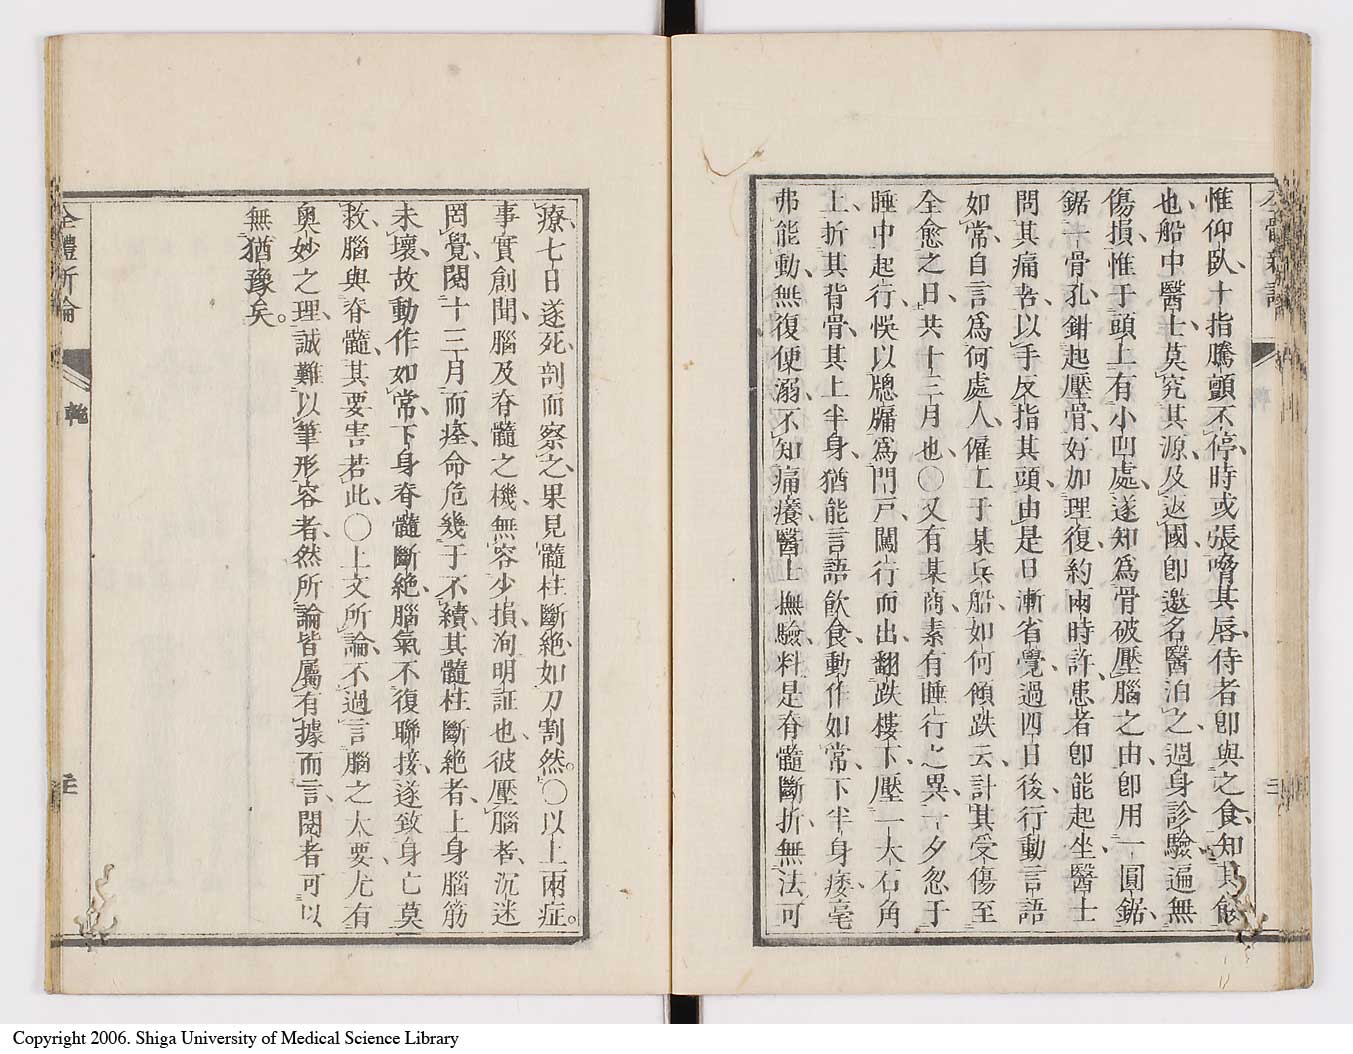 惟仰臥、十指騰顫不停、時或張脅其唇、侍者卽與之食、知其餒
也、船中醫士莫究其源、及返國、卽邀名醫治之、週身診驗、遍無
傷損、惟于頭上有小凹處、遂知爲骨破壓腦之由、卽用一圓鋸、
鋸一骨孔、鉗起壓骨、好加理復、約兩時許、患者卽能起坐、醫士
問其痛否、以手反指其頭、由是日漸省覺、過四日後、行動言語
如常、自言爲何處人、僱工于某兵船、如何傾跌云、計其受傷至
全愈之日、共十三月也、〇又有某商、素有睡行之異、一夕忽于
睡中起行、悞以牕牖爲門戸、闖行而出、翻跌樓下、壓一大石角
上、折其背骨、其上半身、猶能言語飮食、動作如常、下半身痿、毫
弗能動、無復便溺、不知痛癢、醫士撫驗、料是脊髓斷折、無法可
療、七日遂死、剖而察之、果見髓柱斷絶、如刀割然。〇以上兩症。
事實創聞、腦及脊髓之機、無容少損、洵明証也、彼壓腦者、沉迷
罔覺、閱十三月而痊、命危幾于不續、其髓柱斷絶者、上身腦筋
未壞、故動作如常、下身脊髓斷絶、腦氣不復聯接、遂致身亡莫
救、腦與脊髓、其要害若此、〇上文所論、不過言腦之大要、尤有
奧妙之理。誠難以筆形容者、然所論皆屬有據而言、閱者可以
無猶豫矣。
全體新論
乾
三